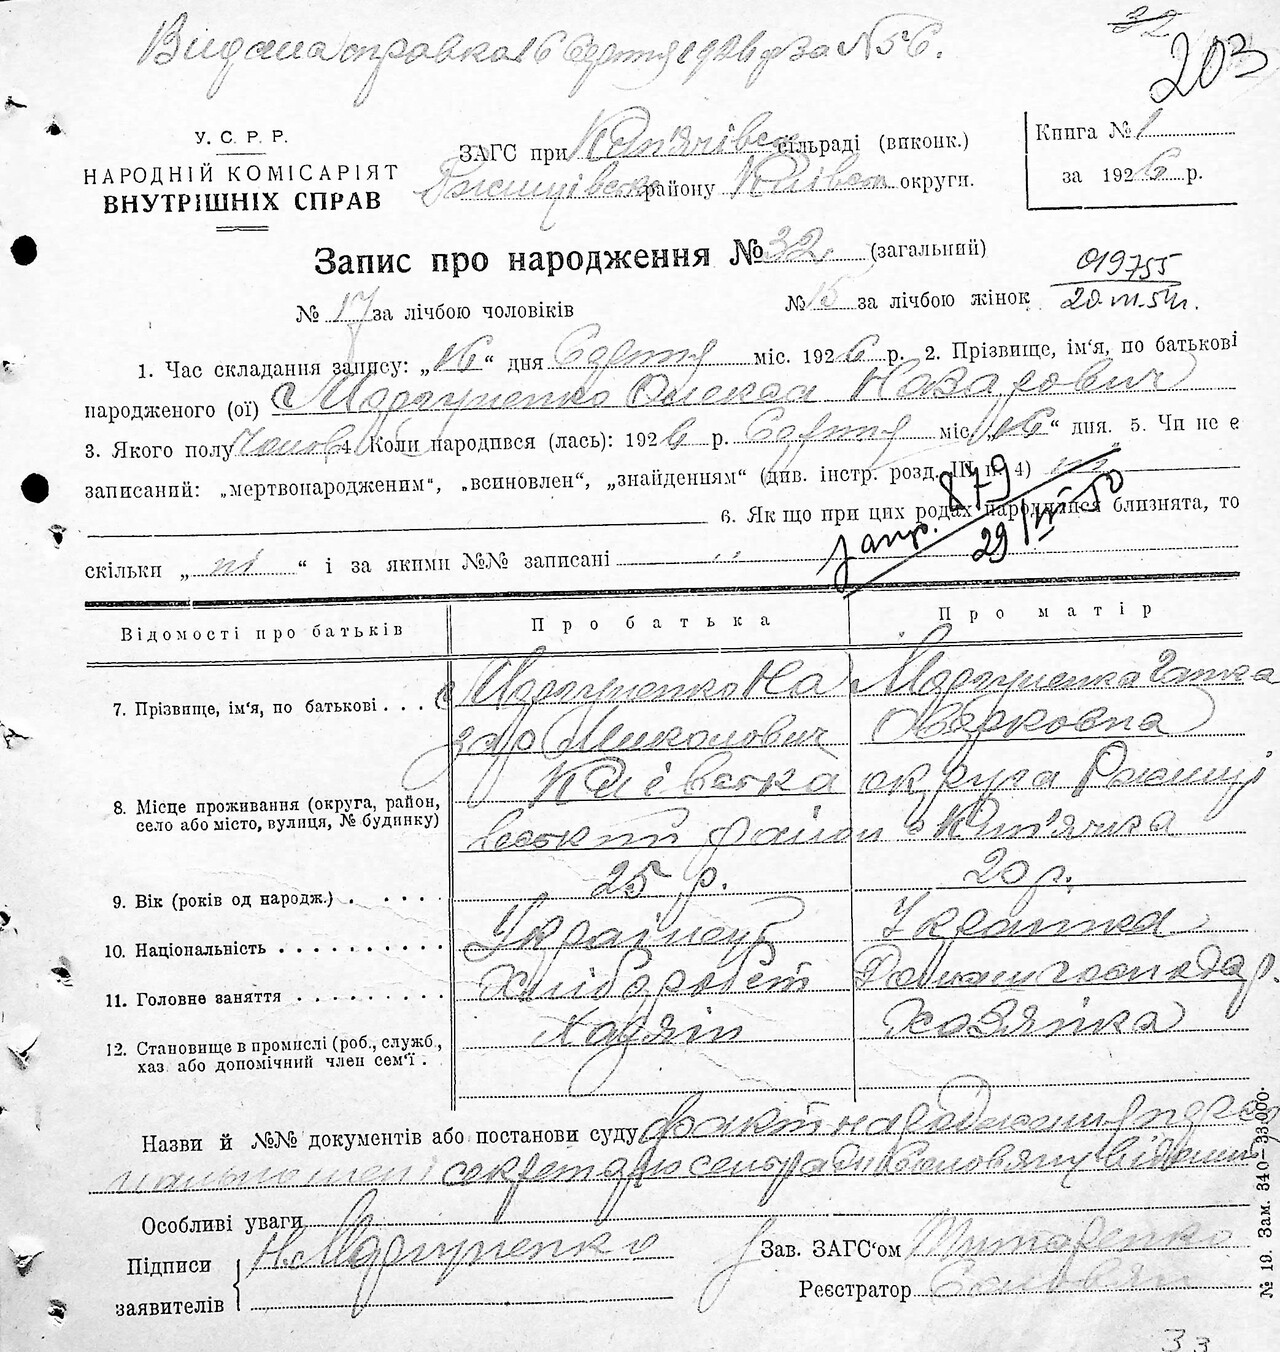 Видана справка 16 Серпня 1926 р за № 56.
32
203
У. С. Р. Р.
НАРОДНІЙ КОМІСАРІЯТ
ВНУТРІШНІХ СПРАВ
ЗАГС при Коп'ячівск сільраді (виконк.)
Ржищівськ району Київськ округи.
Книга № 1
за 1926 р.
Запис про народження № 32 (загальний)
№ 17 за лічбою чоловіків
№ 15 за лічбою жінок
019755
1. Час складання запису: „16“ дня Серпня міс. 1926 р. 2. Прізвище, ім'я, по батькові
народженого (ої) Олекса Назарович
3. Якого полу Чолов 4. Коли народився (лась): 1926 р. Серпня міс. „16“ дня. 5. Чи не є
записаний: „мертвонародженим“, „всиновлен“, „знайденням“ (див. інстр. розд. III п. 4) ні
6. Якщо при цих родах народилися близнята, то
скільки „ні“ і за якими №№ записані „
879
29/IV-50
Відомості про батьків
Про батька
Про матір
7. Прізвище, ім'я, по батькові . . .
На
зар Миколович
Оверковна
8. Місце проживання (округа, район,
село або місто, вулиця, № будинку)
Київська округа Ржищі
вський район
9. Вік (років од народж.) . . . . .
25 р.
20 р.
10. Національність . . . . . . . . . .
Українець
Українка
11. Головне заняття . . . . . . . . .
Хлібороб
Домашн господар.
12. Становище в промислі (роб., служб.,
хаз. або допомічний член сем'ї .
Хазяїн
Хазяйка
Назви й №№ документів або постанови суду факт народження
секретарю сельради
Особливі уваги
Підписи
заявителів
Зав. ЗАГС'ом
Реєстратор Соловян
№ 19. Зам. 340—33.000.
33